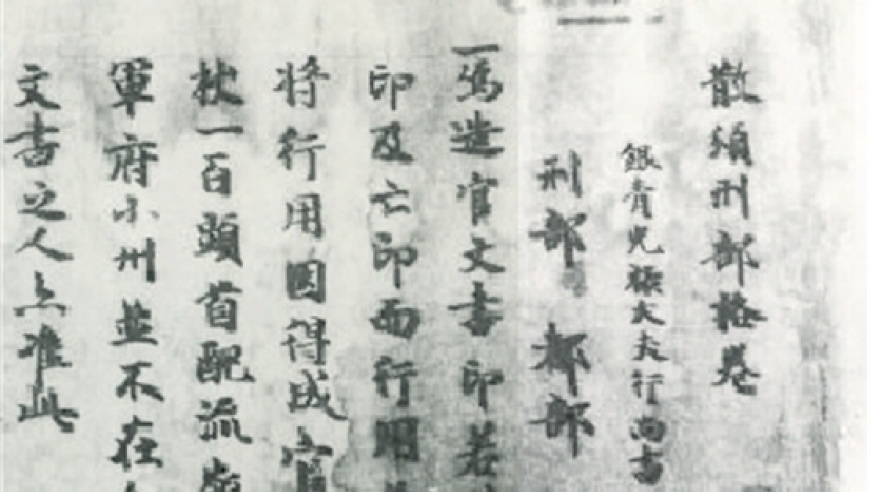 散頒刑部格卷
銀青光祿大夫行尚書
刑部 都部
一偽造官文書印若
印及亡印而行用
將行用因得成官
杖一百頭首配流
軍府小州並不在
文書之人亦准此